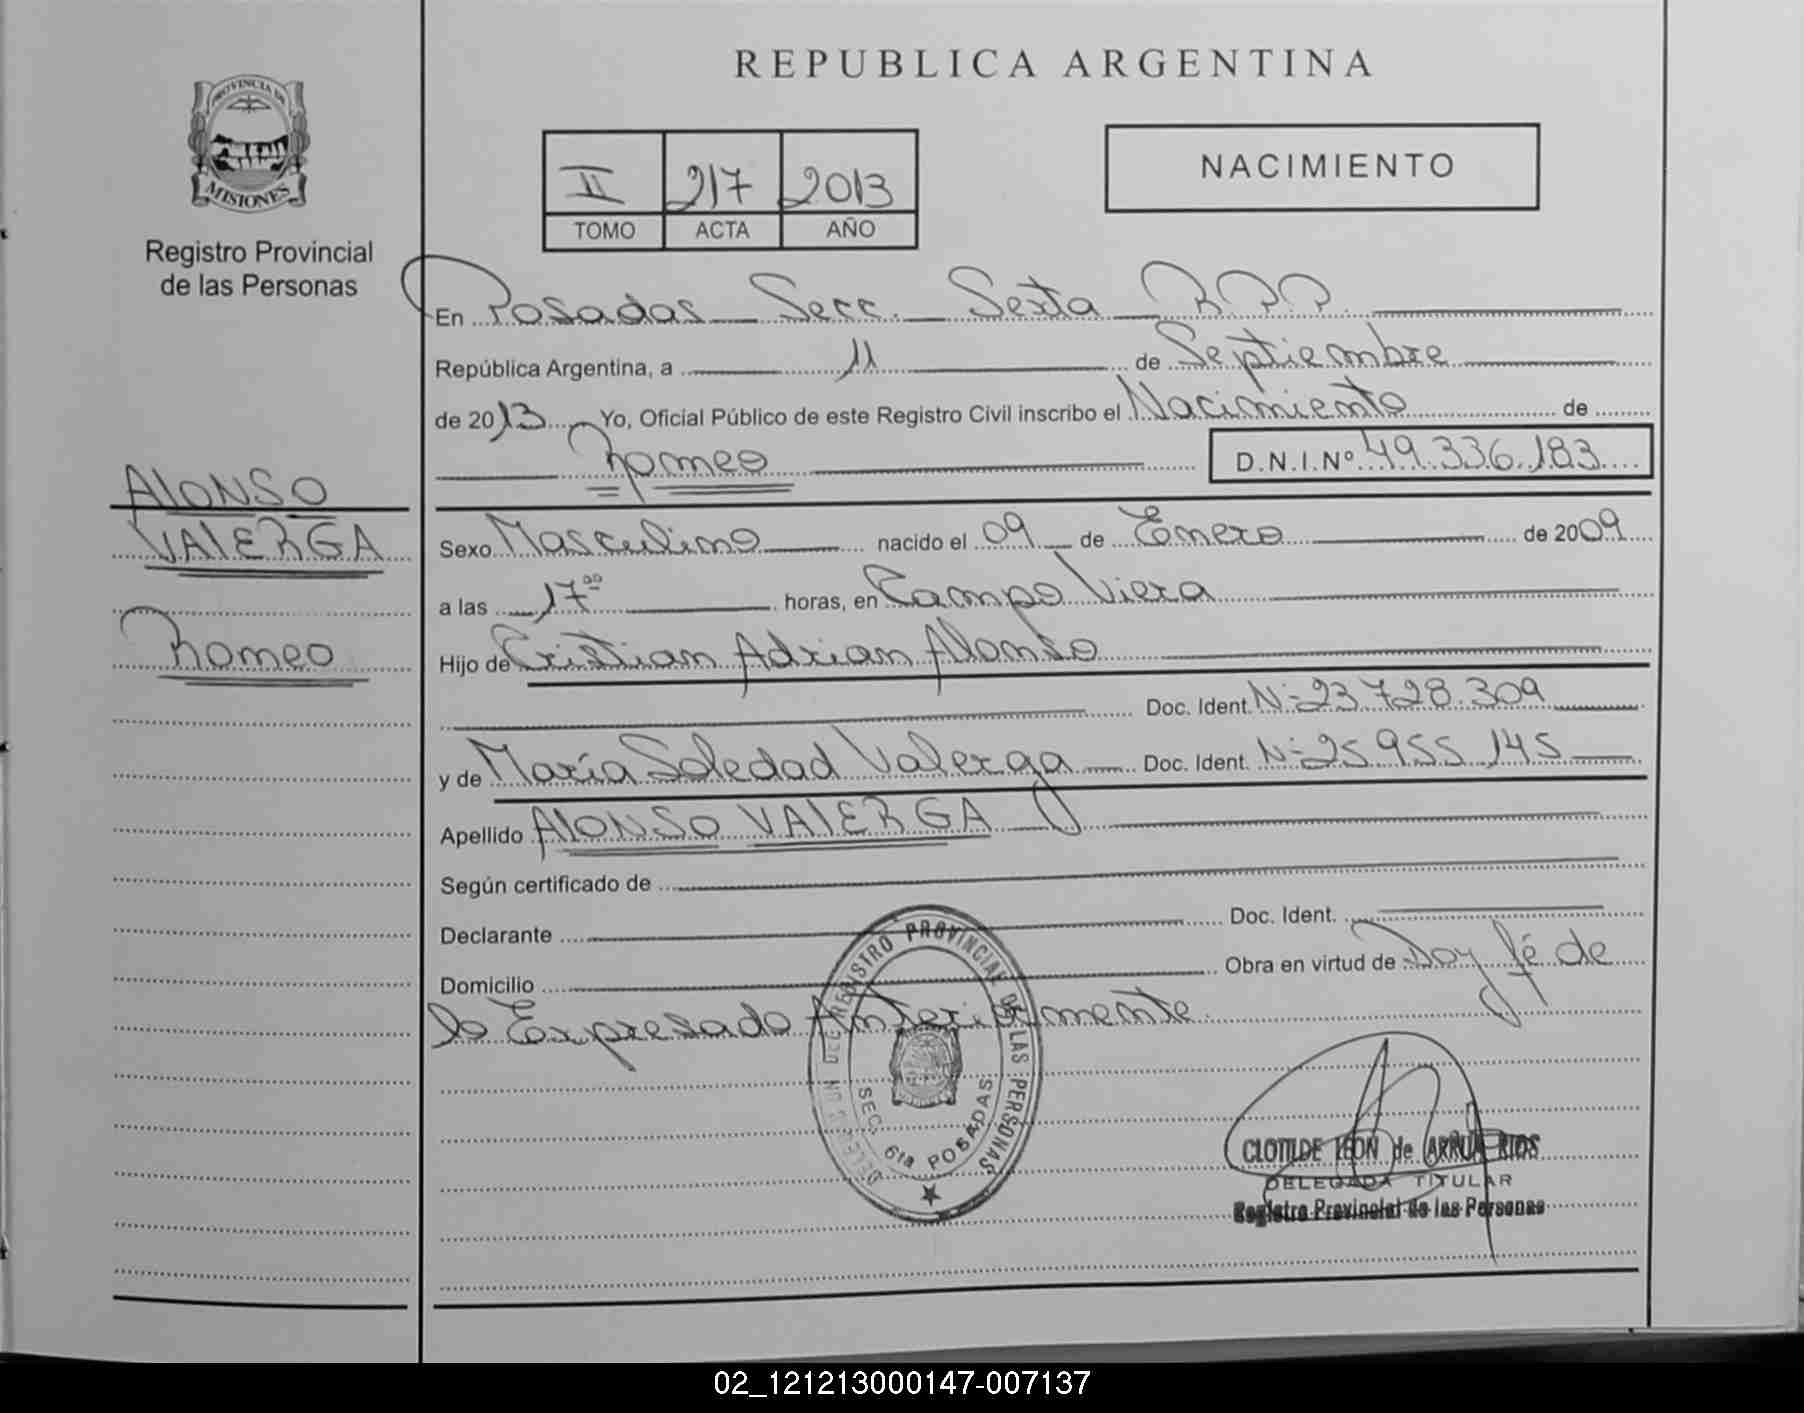 REPUBLICA ARGENTINA
PROVINCIA DE
MISIONES
Registro Provincial
de las Personas
II 217 2013
TOMO ACTA AÑO
NACIMIENTO
En Posadas Secc. Sexta R.P.P.
República Argentina, a 11 de Septiembre
de 2013 Yo, Oficial Público de este Registro Civil inscribo el Nacimiento de
Romeo D.N.I.Nº 49.336.183
ALONSO
VALERGA
Romeo
Sexo Masculino nacido el 09 de Enero de 2009
a las 17⁰⁰ horas, en Campo Viera
Hijo de Cristian Adrian Alonso
Doc. Ident. Nº 23.728.309
y de María Soledad Valerga Doc. Ident. Nº 25.955.145
Apellido ALONSO VALERGA
Según certificado de
Declarante Doc. Ident.
Domicilio Obra en virtud de Doy fé de
lo Expresado Anteriormente.
REGISTRO PROVINCIAL DE LAS PERSONAS
DELEGACION
SEC. 6ta POSADAS
CLOTILDE LEON de ARRUA RIOS
DELEGADA TITULAR
Registro Provincial de las Personas
02_121213000147-007137